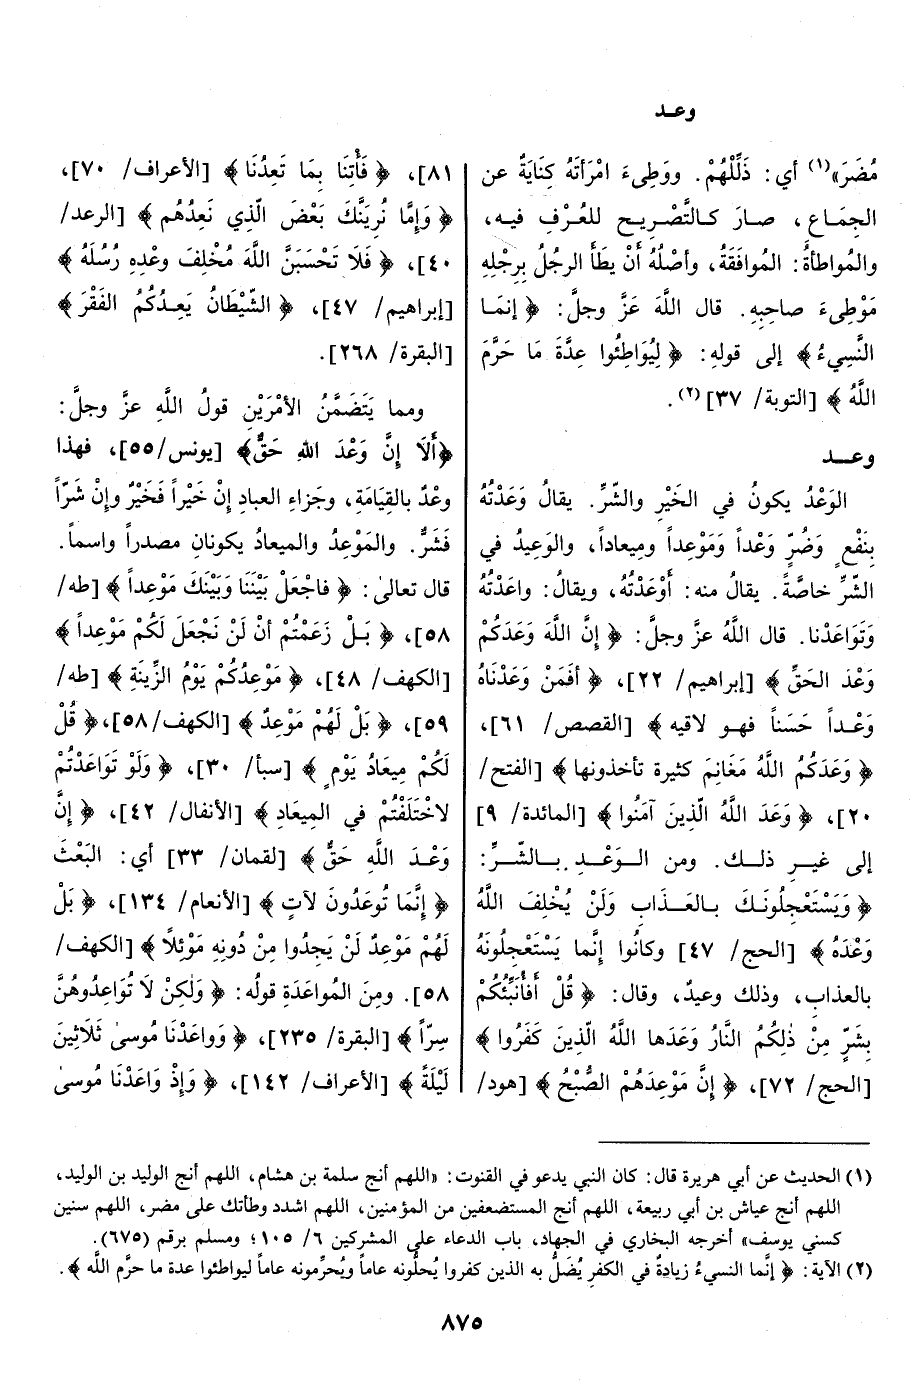 وعـد
مُضَرَ»(١) أي: ذَلِّلْهُمْ. ووَطِىءَ امْرأتَهُ كِنَايَةٌ عن
الجِمَاعِ، صـارَ كـالتَّصْرِيـحِ للعُرْفِ فيـه،
والمُواطأةُ: المُوافَقَةُ، وأصْلُهُ أنْ يطَأ الرجُلُ بِرجْلِهِ
مَوْطِىءَ صاحِبِهِ. قال اللَّهَ عَزَّ وجلَّ: ﴿ إنمَـا
النَّسِيءُ﴾ إلى قولِهِ: ﴿ لِيُوَاطِئُوا عِدَّةَ مَا حَرَّمَ
اللَّهُ ﴾ [التوبة/ ٣٧](٢).
وعــد
الوَعْدُ يكونُ في الخَيْرِ والشَّرِّ. يقالُ وَعَدْتُهُ
بِنَفْعٍ وَضُرٍّ وَعْداً وَمَوْعِداً ومِيعاداً، والوَعِيدُ في
الشَّرِّ خاصَّةً. يقالُ منه: أوْعَدْتُهُ، ويقالُ: واعَدْتُهُ
وَتَوَاعَدْنا. قال اللَّهُ عزَّ وجلَّ: ﴿ إنَّ اللَّهَ وَعَدَكُمْ
وَعْدَ الحَقِّ ﴾ [إبراهيم/ ٢٢]، ﴿ أفَمَنْ وَعَدْنَاهُ
وَعْـداً حَسَناً فهـو لاقيه ﴾ [القصص/ ٦١]،
﴿ وَعَدَكُم اللَّهُ مَغَانِمَ كثيرة تأخذونها ﴾ [الفتح/
٢٠]، ﴿ وَعَدَ اللَّهُ الَّذِينَ آمَنُوا ﴾ [المائدة/ ٩]
إلى غيـرِ ذلـك. ومن الـوَعْـدِ بـالشَّـرِّ:
﴿ وَيَسْتَعْجِلُونَـكَ بـالعَـذَابِ وَلَنْ يُخْلِفَ اللَّهُ
وَعْدَهُ ﴾ [الحج/ ٤٧] وكانُوا إنَّما يَسْتَعْجِلُونَهُ
بالعذابِ، وذلك وعيدٌ، وقال: ﴿ قُلْ أفَأُنَبِّئُكُمْ
بشَرٍّ مِنْ ذٰلِكُمُ النَّارُ وَعَدَها اللَّهُ الَّذِينَ كَفَرُوا ﴾
[الحج/ ٧٢]، ﴿ إنَّ مَوْعِدَهُمْ الصُّبْحُ ﴾ [هود/
٨١]، ﴿ فَأْتِنَا بِمَا تَعِدُنَا ﴾ [الأعراف/ ٧٠]،
﴿ وَإمَّا نُرِيَنَّكَ بَعْضَ الَّذِي نَعِدُهُم ﴾ [الرعد/
٤٠]، ﴿ فَلَا تَحْسَبَنَّ اللَّهَ مُخْلِفَ وعْدِهِ رُسُلَهُ ﴾
[إبراهيم/ ٤٧]، ﴿ الشَّيْطَانُ يَعِدُكُمُ الفَقْرَ ﴾
[البقرة/ ٢٦٨].
ومما يَتَضَمَّنُ الأمْرَيْنِ قولُ اللَّهِ عزَّ وجلَّ:
﴿أَلَا إنَّ وَعْدَ اللهِ حَقٌّ﴾ [يونس/٥٥]، فهذا
وعْدٌ بالقِيَامَةِ، وجَزاءِ العبادِ إنْ خَيْراً فَخَيْرٌ وإنْ شَرّاً
فَشَرٌّ. والمَوْعِدُ والميعادُ يكونانِ مصدراً واسماً.
قال تعالىٰ: ﴿ فاجْعَلْ بَيْنَنَا وَبَيْنَكَ مَوْعِداً ﴾ [طه/
٥٨]، ﴿ بَـلْ زَعَمْتُمْ أنْ لَنْ نَجْعَلَ لَكُمْ مَوْعِداً ﴾
[الكهف/ ٤٨]، ﴿ مَوْعِدُكُمْ يَوْمُ الزِّينَةِ ﴾ [طه/
٥٩]، ﴿ بَلْ لَهُمْ مَوْعِدٌ ﴾ [الكهف/٥٨]،﴿ قُلْ
لَكُمْ مِيعَادُ يَوْمٍ ﴾ [سبأ/ ٣٠]، ﴿ وَلَوْ تَوَاعَدْتُمْ
لاخْتَلَفْتُمْ في المِيعَادِ ﴾ [الأنفال/ ٤٢]، ﴿ إنَّ
وَعْـدَ اللَّهِ حَقٌّ ﴾ [لقمان/ ٣٣] أي: البَعْثَ
﴿ إنَّمَا تُوعَدُونَ لآتٍ ﴾ [الأنعام/ ١٣٤]، ﴿ بَلْ
لَهُمْ مَوْعِدٌ لَنْ يَجِدُوا مِنْ دُونِهِ مَوْئلاً ﴾ [الكهف/
٥٨]. ومِنَ المُواعَدَةِ قولُه: ﴿ وَلٰكِنْ لَا تُوَاعِدُوهُنَّ
سِرّاً ﴾ [البقرة/ ٢٣٥]، ﴿ وَواعَدْنَا مُوسىٰ ثَلَاثِينَ
لَيْلَةً ﴾ [الأعراف/ ١٤٢]، ﴿ وَإذْ وَاعَدْنَا مُوسىٰ
(١) الحديث عن أبي هريرة قال: كان النبي يدعو في القنوت: «اللهم أنج سلمة بن هشام، اللهم أنج الوليد بن الوليد،
اللهم أنج عياش بن أبي ربيعة، اللهم أنج المستضعفين من المؤمنين، اللهم اشدد وطأتك على مضر، اللهم سنين
كسني يوسف» أخرجه البخاري في الجهاد، باب الدعاء على المشركين ٦/ ١٠٥؛ ومسلم برقم (٦٧٥).
(٢) الآية: ﴿ إنَّما النسيءُ زيادةٌ في الكفرِ يُضَلُّ به الذين كفروا يُحلُّونه عاماً ويُحرِّمونه عاماً ليواطئوا عدة ما حرَّم اللَّه ﴾.
٨٧٥